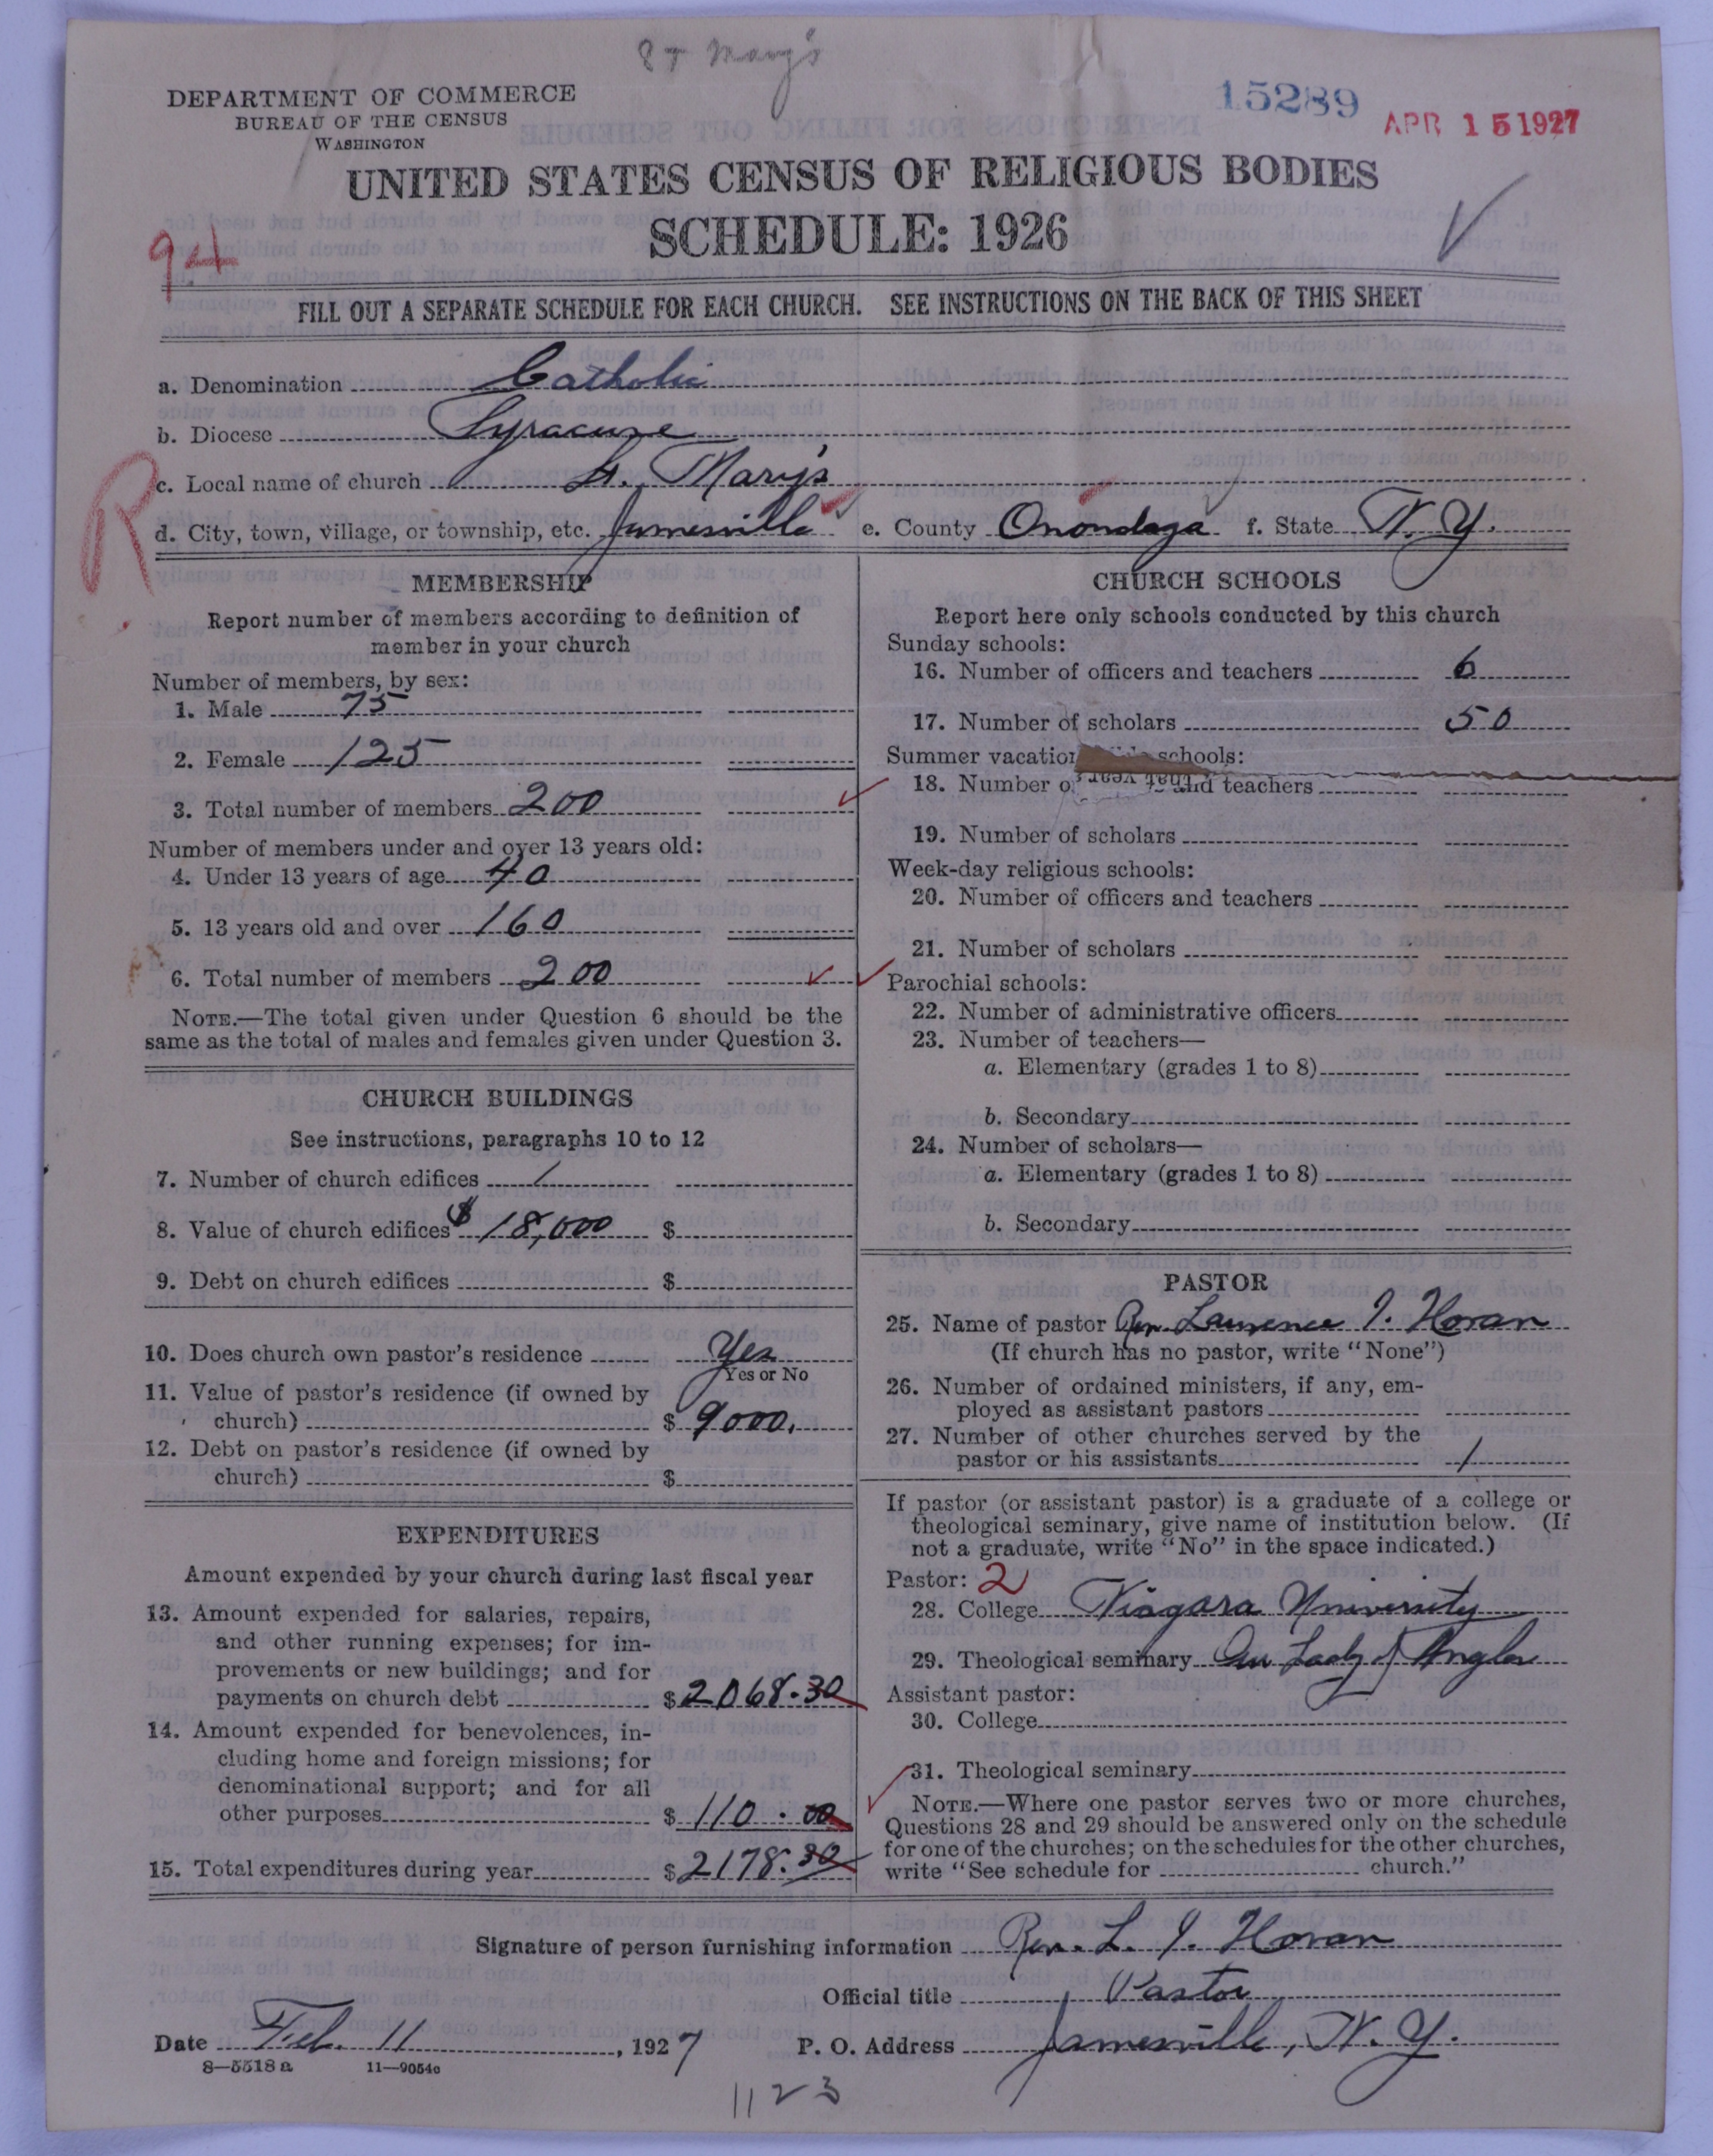 St Mary's
DEPARTMENT OF COMMERCE
BUREAU OF THE CENSUS
WASHINGTON
15289
APR 15 1927
UNITED STATES CENSUS OF RELIGIOUS BODIES
SCHEDULE: 1926
94
FILL OUT A SEPARATE SCHEDULE FOR EACH CHURCH. SEE INSTRUCTIONS ON THE BACK OF THIS SHEET
a. Denomination Catholic
b. Diocese Syracuse
c. Local name of church St. Mary's
R
d. City, town, village, or township, etc. Jamesville e. County Onondaga f. State N.Y.
MEMBERSHIP
Report number of members according to definition of
member in your church
Number of members, by sex:
1. Male 75
2. Female 125
3. Total number of members 200
Number of members under and over 13 years old:
4. Under 13 years of age 40
5. 13 years old and over 160
6. Total number of members 200
NOTE.—The total given under Question 6 should be the
same as the total of males and females given under Question 3.
CHURCH BUILDINGS
See instructions, paragraphs 10 to 12
7. Number of church edifices 1
8. Value of church edifices $ 18,000 $
9. Debt on church edifices $
10. Does church own pastor's residence Yes
Yes or No
11. Value of pastor's residence (if owned by
church) $ 9000.
12. Debt on pastor's residence (if owned by
church) $
EXPENDITURES
Amount expended by your church during last fiscal year
13. Amount expended for salaries, repairs,
and other running expenses; for im-
provements or new buildings; and for
payments on church debt $ 2068.30
14. Amount expended for benevolences, in-
cluding home and foreign missions; for
denominational support; and for all
other purposes $ 110.00
15. Total expenditures during year $ 2178.30
CHURCH SCHOOLS
Report here only schools conducted by this church
Sunday schools:
16. Number of officers and teachers 6
17. Number of scholars 50
Summer vacation schools:
18. Number o that year and teachers
19. Number of scholars
Week-day religious schools:
20. Number of officers and teachers
21. Number of scholars
Parochial schools:
22. Number of administrative officers
23. Number of teachers—
a. Elementary (grades 1 to 8)
b. Secondary
24. Number of scholars—
a. Elementary (grades 1 to 8)
b. Secondary
PASTOR
25. Name of pastor Rev. Lawrence I. Horan
(If church has no pastor, write "None")
26. Number of ordained ministers, if any, em-
ployed as assistant pastors
27. Number of other churches served by the
pastor or his assistants 1
If pastor (or assistant pastor) is a graduate of a college or
theological seminary, give name of institution below. (If
not a graduate, write "No" in the space indicated.)
Pastor: 2
28. College Niagara University
29. Theological seminary Our Lady of Angles
Assistant pastor:
30. College
31. Theological seminary
NOTE.—Where one pastor serves two or more churches,
Questions 28 and 29 should be answered only on the schedule
for one of the churches; on the schedules for the other churches,
write "See schedule for church."
Signature of person furnishing information Rev. L. I. Horan
Official title Pastor
Date Feb. 11, 1927 P. O. Address Jamesville, N.Y.
8—5518 a 11—9054c
1123